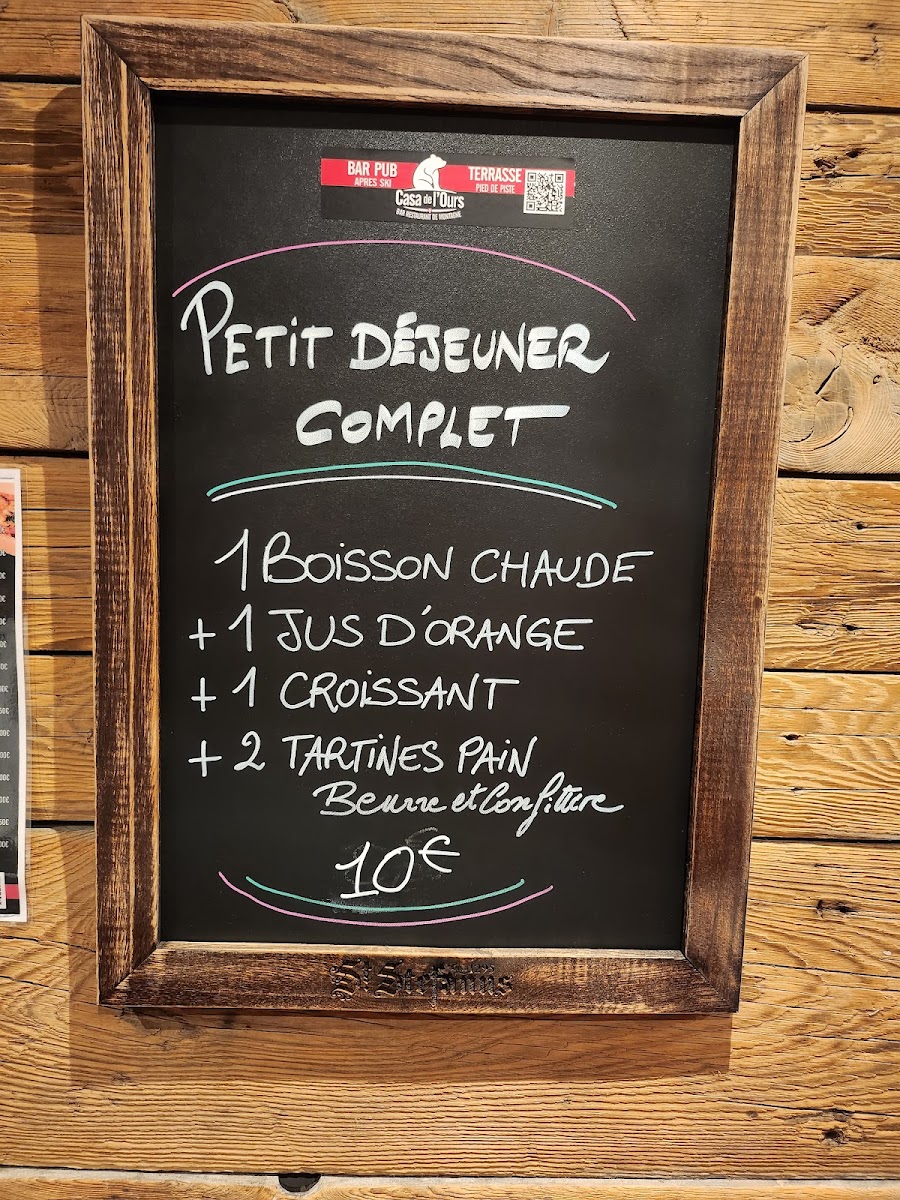 BAR PUB
APRES SKI
TERRASSE
PIED DE PISTE
Casa de l'Ours
BAR RESTAURANT DE MONTAGNE
PETIT DÉJEUNER
COMPLET
1 BOISSON CHAUDE
+ 1 JUS D'ORANGE
+ 1 CROISSANT
+ 2 TARTINES PAIN
Beurre et Confiture
10€
St Stefanus